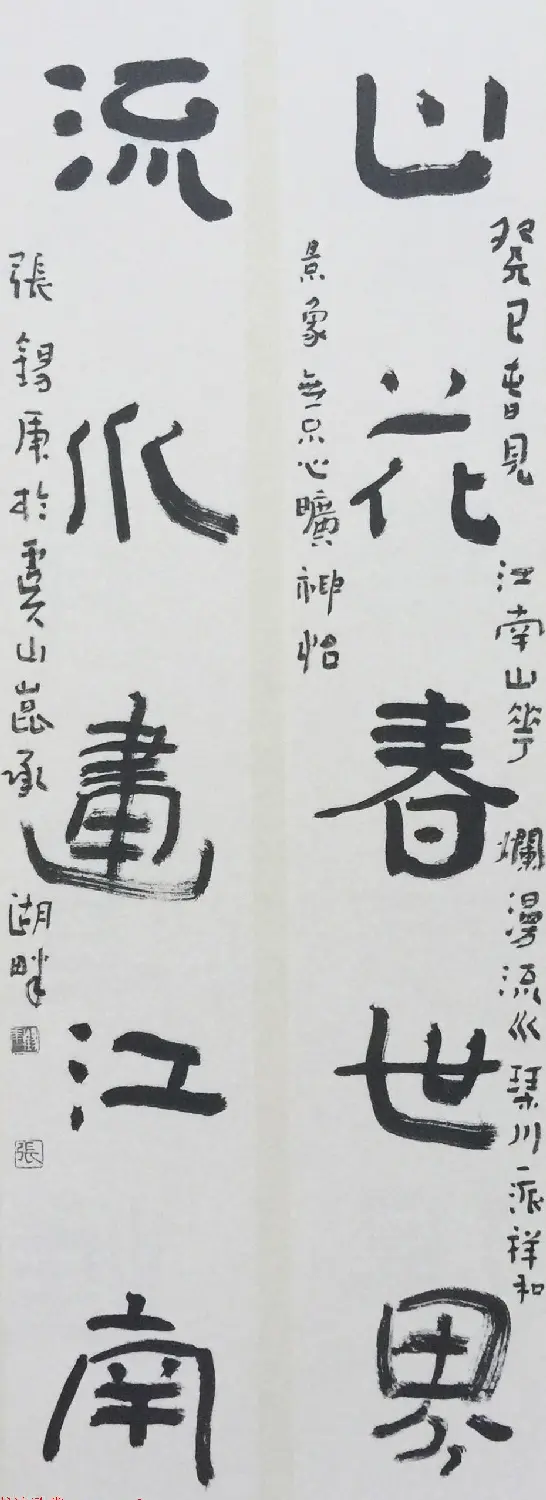 山花春世界
癸巳春見江南山華爛漫流水琴川一派祥和
景象無不心曠神怡
流水畫江南
張錫庚於虞山昆承湖畔
張